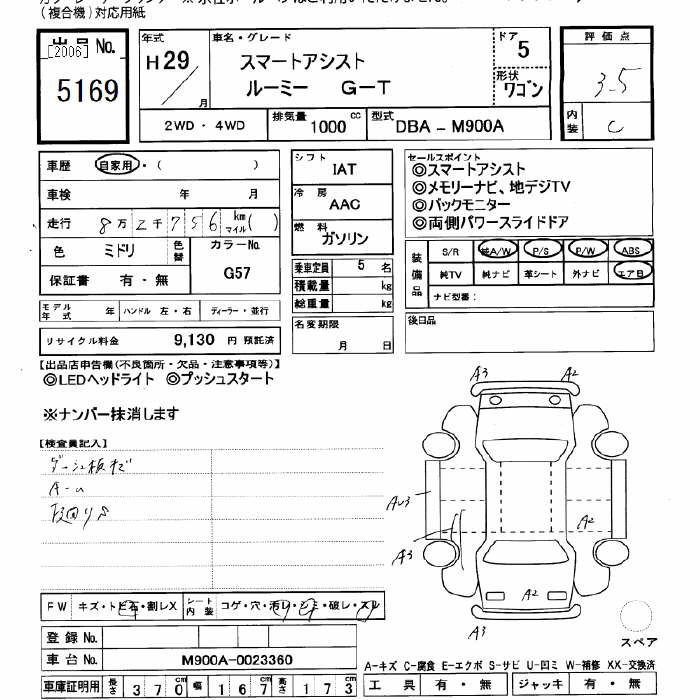 (複合機)対応用紙
出品 No.
[2006]
5169
年式
H29
月
車名・グレード
スマートアシスト
ルーミー G-T
ドア
5
形状
ワゴン
評価点
3.5
内装
C
2WD・4WD
排気量 1000 cc
型式 DBA-M900A
車歴 自家用・( )
車検 年 月
走行 8万2千756 km マイル( )
色 ミドリ 色替
カラーNo.
G57
保証書 有・無
シフト
IAT
冷房
AAC
燃料
ガソリン
乗車定員 5 名
積載量 kg
総重量 kg
セールスポイント
◎スマートアシスト
◎メモリーナビ、地デジTV
◎バックモニター
◎両側パワースライドドア
装備品
S/R 純A/W P/S P/W ABS
純TV 純ナビ 革シート 外ナビ エアB
ナビ型番:
モデル年式 年 ハンドル 左・右 ディーラー・並行
リサイクル料金 9,130 円 預託済
名変期限
月 日
後日品
【出品店申告欄(不良箇所・欠品・注意事項等)】
◎LEDヘッドライト ◎プッシュスタート
※ナンバー抹消します
【検査員記入】
A3 A2
AU3
A3
A2
A2
A3
FW キズ・トビ石・割レX
シート内装 コゲ・穴・汚レ・シミ・破レ・スレ
登録 No.
車台 No. M900A-0023360
車庫証明用 長さ 370 幅 167 高さ 173
スペア
A-キズ C-腐食 E-エクボ S-サビ U-凹ミ W-補修 XX-交換済
工具 有・無 ジャッキ 有・無